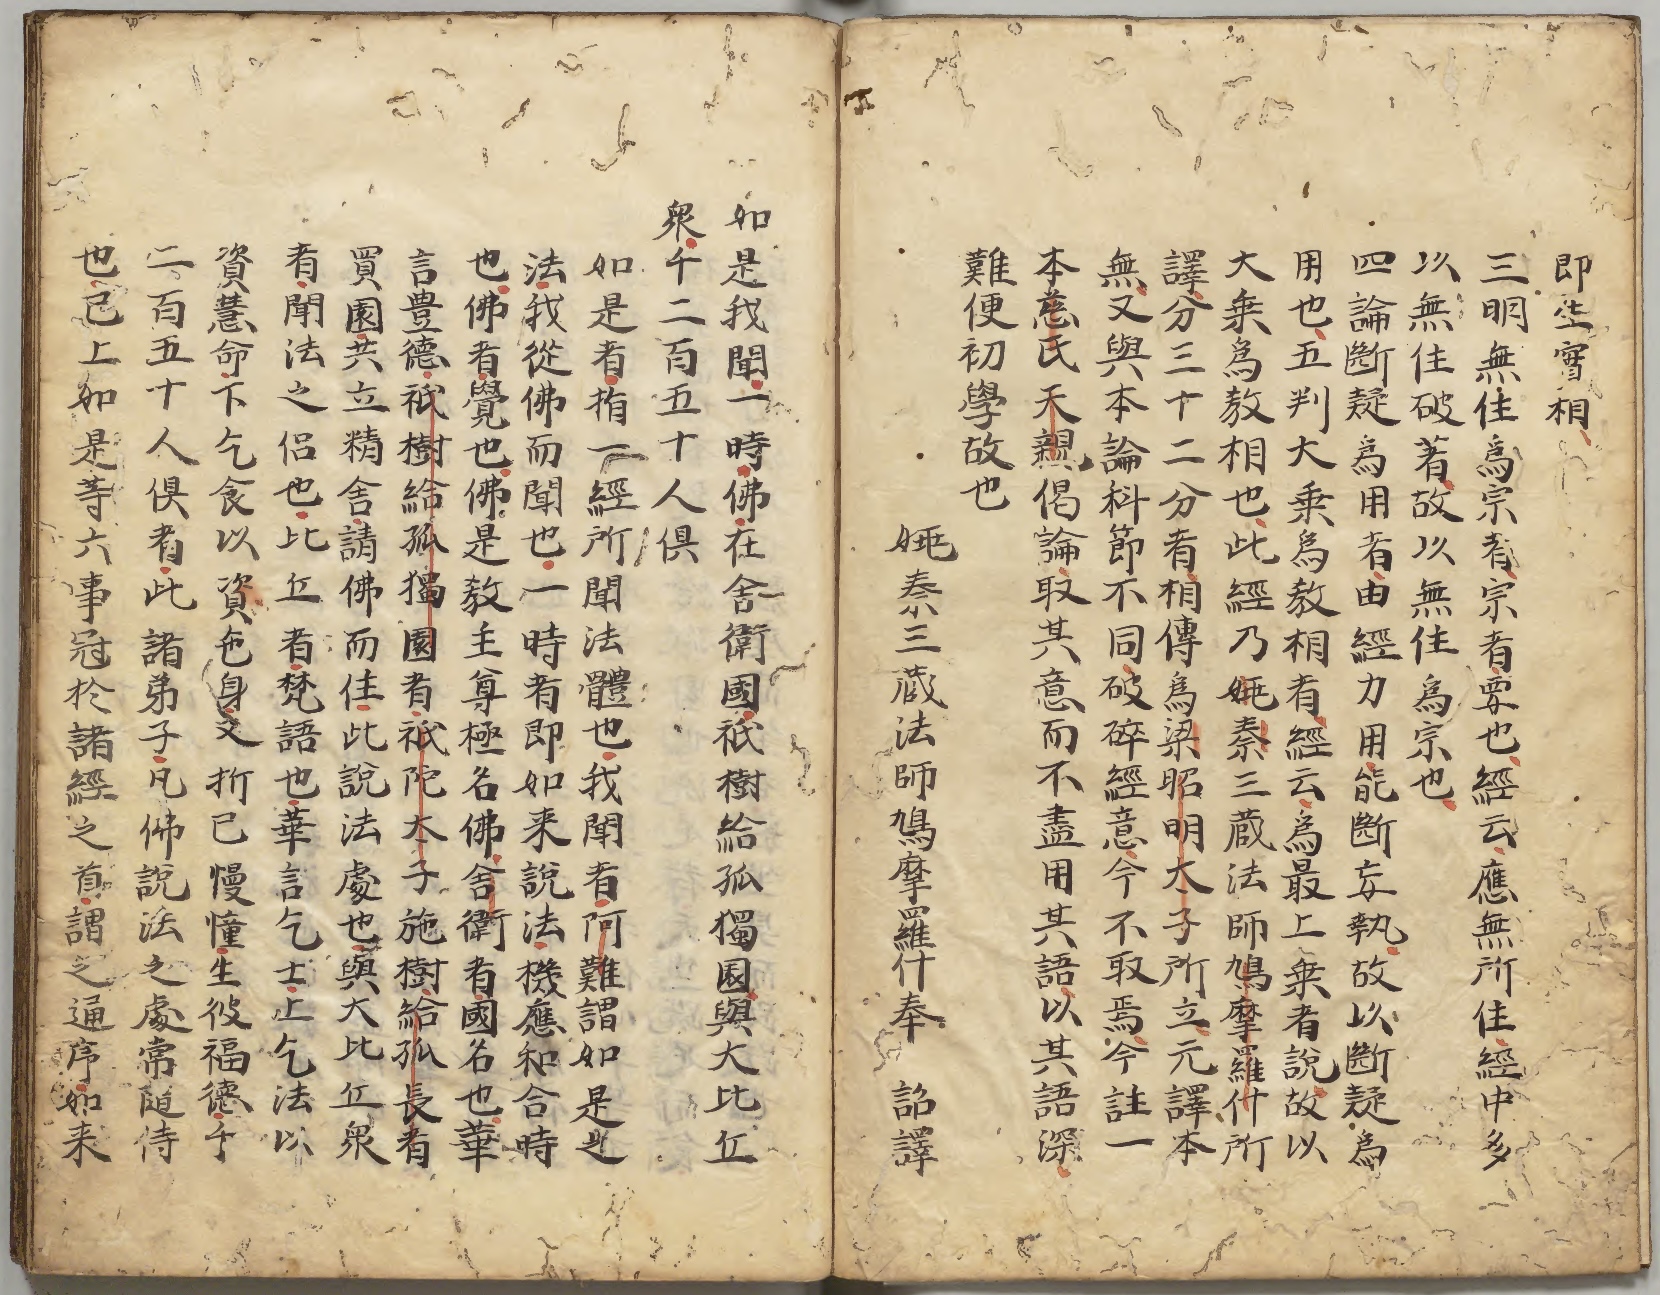 即茔實相
三明無住爲宗者宗者要也經云應無所住經中多
以無住破著故以無住爲宗也
四論斷疑爲用者由經力用能斷妄執故以斷疑爲
用也五判大乗爲教相者經云爲最上乗者說故以
大乗爲教相也此經乃姚秦三蔵法師鳩摩羅什所
譯分三十二分者相傳爲梁昭明太子所立元譯本
無又與本論科節不同破碎經意今不取焉今註一
本慈氏天親偈論取其意而不盡用其語以其語深
難便初學故也
姚秦三蔵法師鳩摩羅什奉 詔譯
如是我聞一時佛在舍衛國祇樹給孤獨園與大比丘
衆千二百五十人俱
如是者指一經所聞法體也我聞者阿難謂如是之
法我從佛而聞也一時者即如来說法機應和合時
也佛者覺也佛是教主尊極名佛舍衛者國名也華
言豊德祇樹給孤獨園者祇陀太子施樹給孤長者
買園共立精舍請佛而住此說法處也與大比丘衆
者聞法之侣也比丘者梵語也華言乞士上乞法以
資慧命下乞食以資色身又折已慢憧生彼福德千
二百五十人俱者此諸弟子凡佛說法之處常随侍
也已上如是等六事冠於諸經之首謂之通序如来